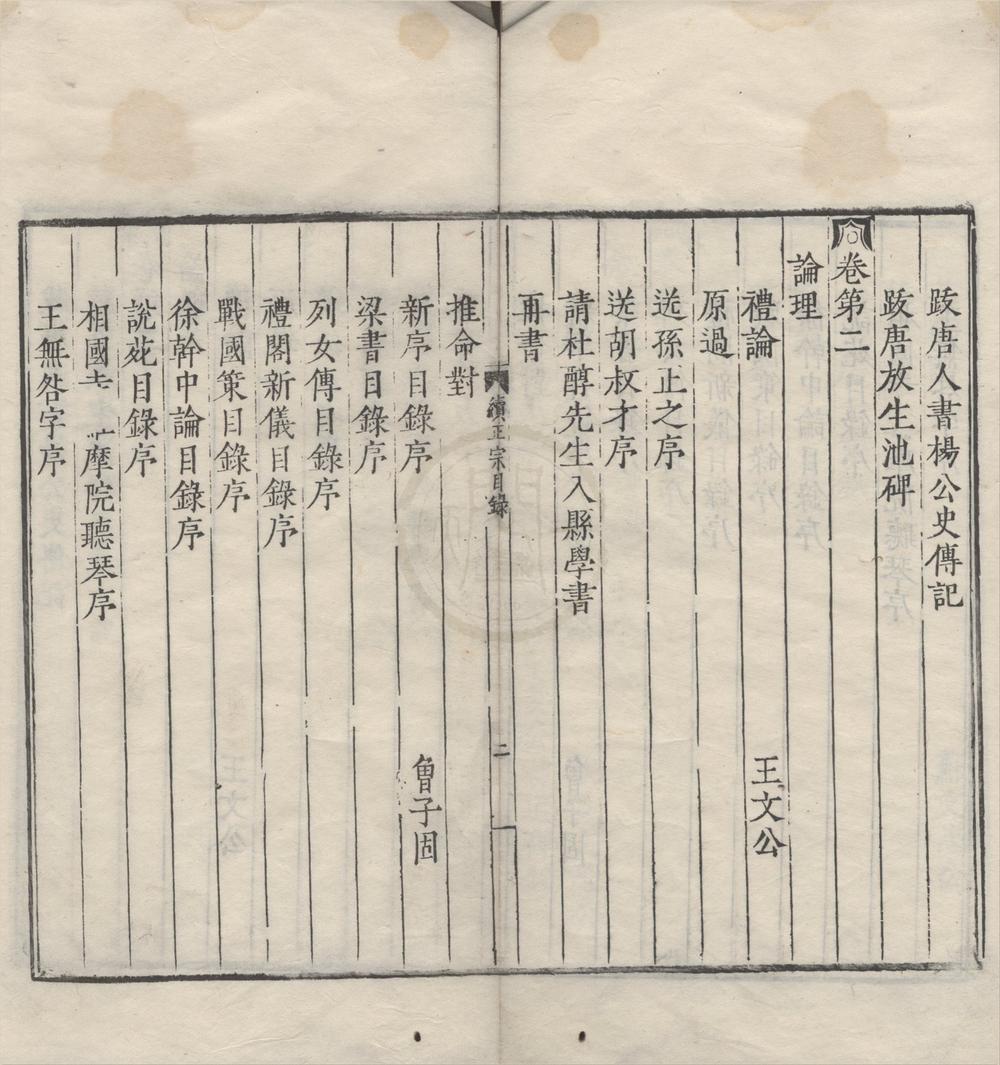 跋唐人書楊公史傳記
跋唐放生池碑
卷第二
論理
禮論 王文公
原過
送孫正之序
送胡叔才序
請杜醇先生入縣學書
再書
續正宗目錄 二
推命對
新序目錄序 曾子固
梁書目錄序
列女傳目錄序
禮閣新儀目錄序
戰國策目錄序
徐幹中論目錄序
說苑目錄序
相國寺 摩院聽琴序
王無咎字序